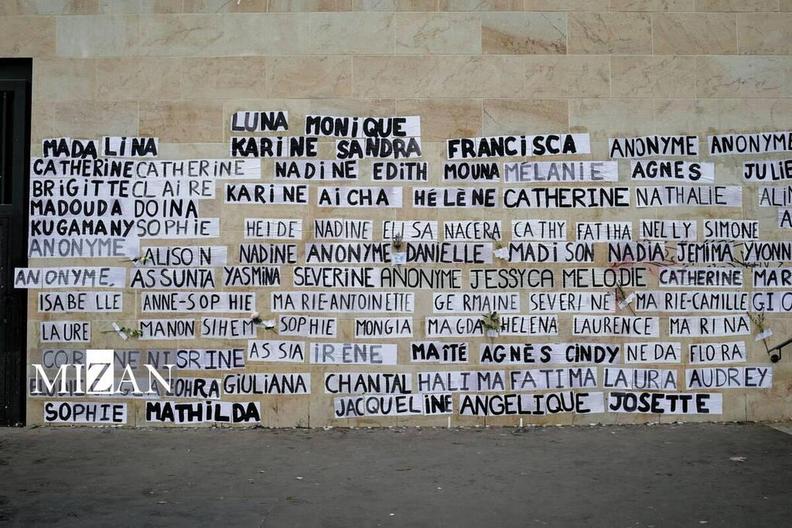 LUNA MONIQUE
MADALINA KARINE SANDRA FRANCISCA ANONYME ANONYME
CATHERINE CATHERINE NADINE EDITH MOUNA MÉLANIE AGNES JULIE
BRIGITTE CLAIRE KARINE AICHA HÉLÈNE CATHERINE NATHALIE
MADOUDA DOINA
KUGAMANY SOPHIE HEIDE NADINE ELISA NACERA CATHY FATIHA NELLY SIMONE
ANONYME ALISON NADINE ANONYME DANIELLE MADISON NADIA JEMIMA YVONN
ANONYME. ASSUNTA YASMINA SEVERINE ANONYME JESSYCA MELODIE CATHERINE MAR
ISABELLE ANNE-SOPHIE MARIE-ANTOINETTE GERMAINE SEVERINE MARIE-CAMILLE GIO
LAURE MANON SIHEM SOPHIE MONGIA MAGDA HELENA LAURENCE MARINA
NISRINE ASSIA IRÈNE MAITÉ AGNÈS CINDY NEDA FLORA
MIZAN
GIULIANA CHANTAL HALIMA FATIMA LAURA AUDREY
SOPHIE MATHILDA JACQUELINE ANGELIQUE JOSETTE